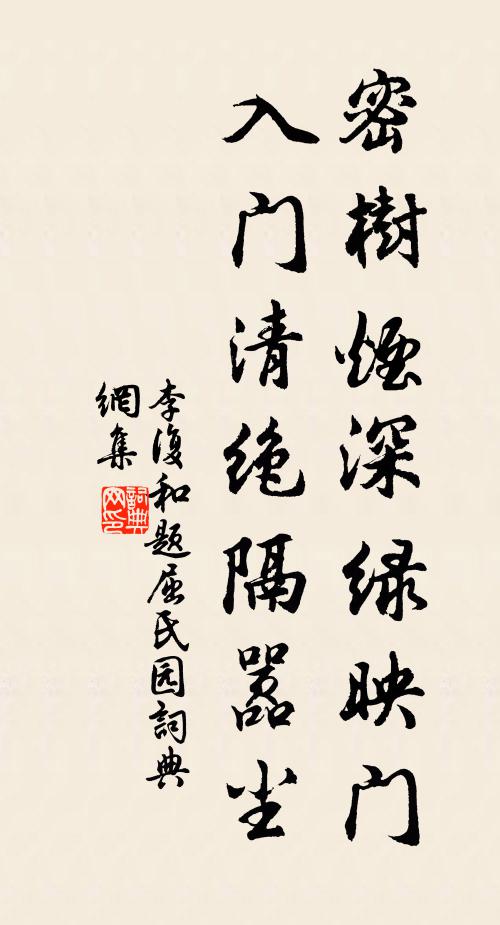 密樹煙深緑映门
入门清绝隔嚣尘
李復和题屈氏园詞典
網集
詞典网印